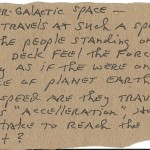 ER-GALACTIC SPACE —
TRAVELS AT SUCH A SPE
HE PEOPLE STANDING ON
DECK FEEL THE FORC
Y AS IF THE WERE ON
CE OF PLANET EARTH
SPEED ARE THEY TRAV
S "ACCELLERATION",
TAKE TO REACH THE
T ?